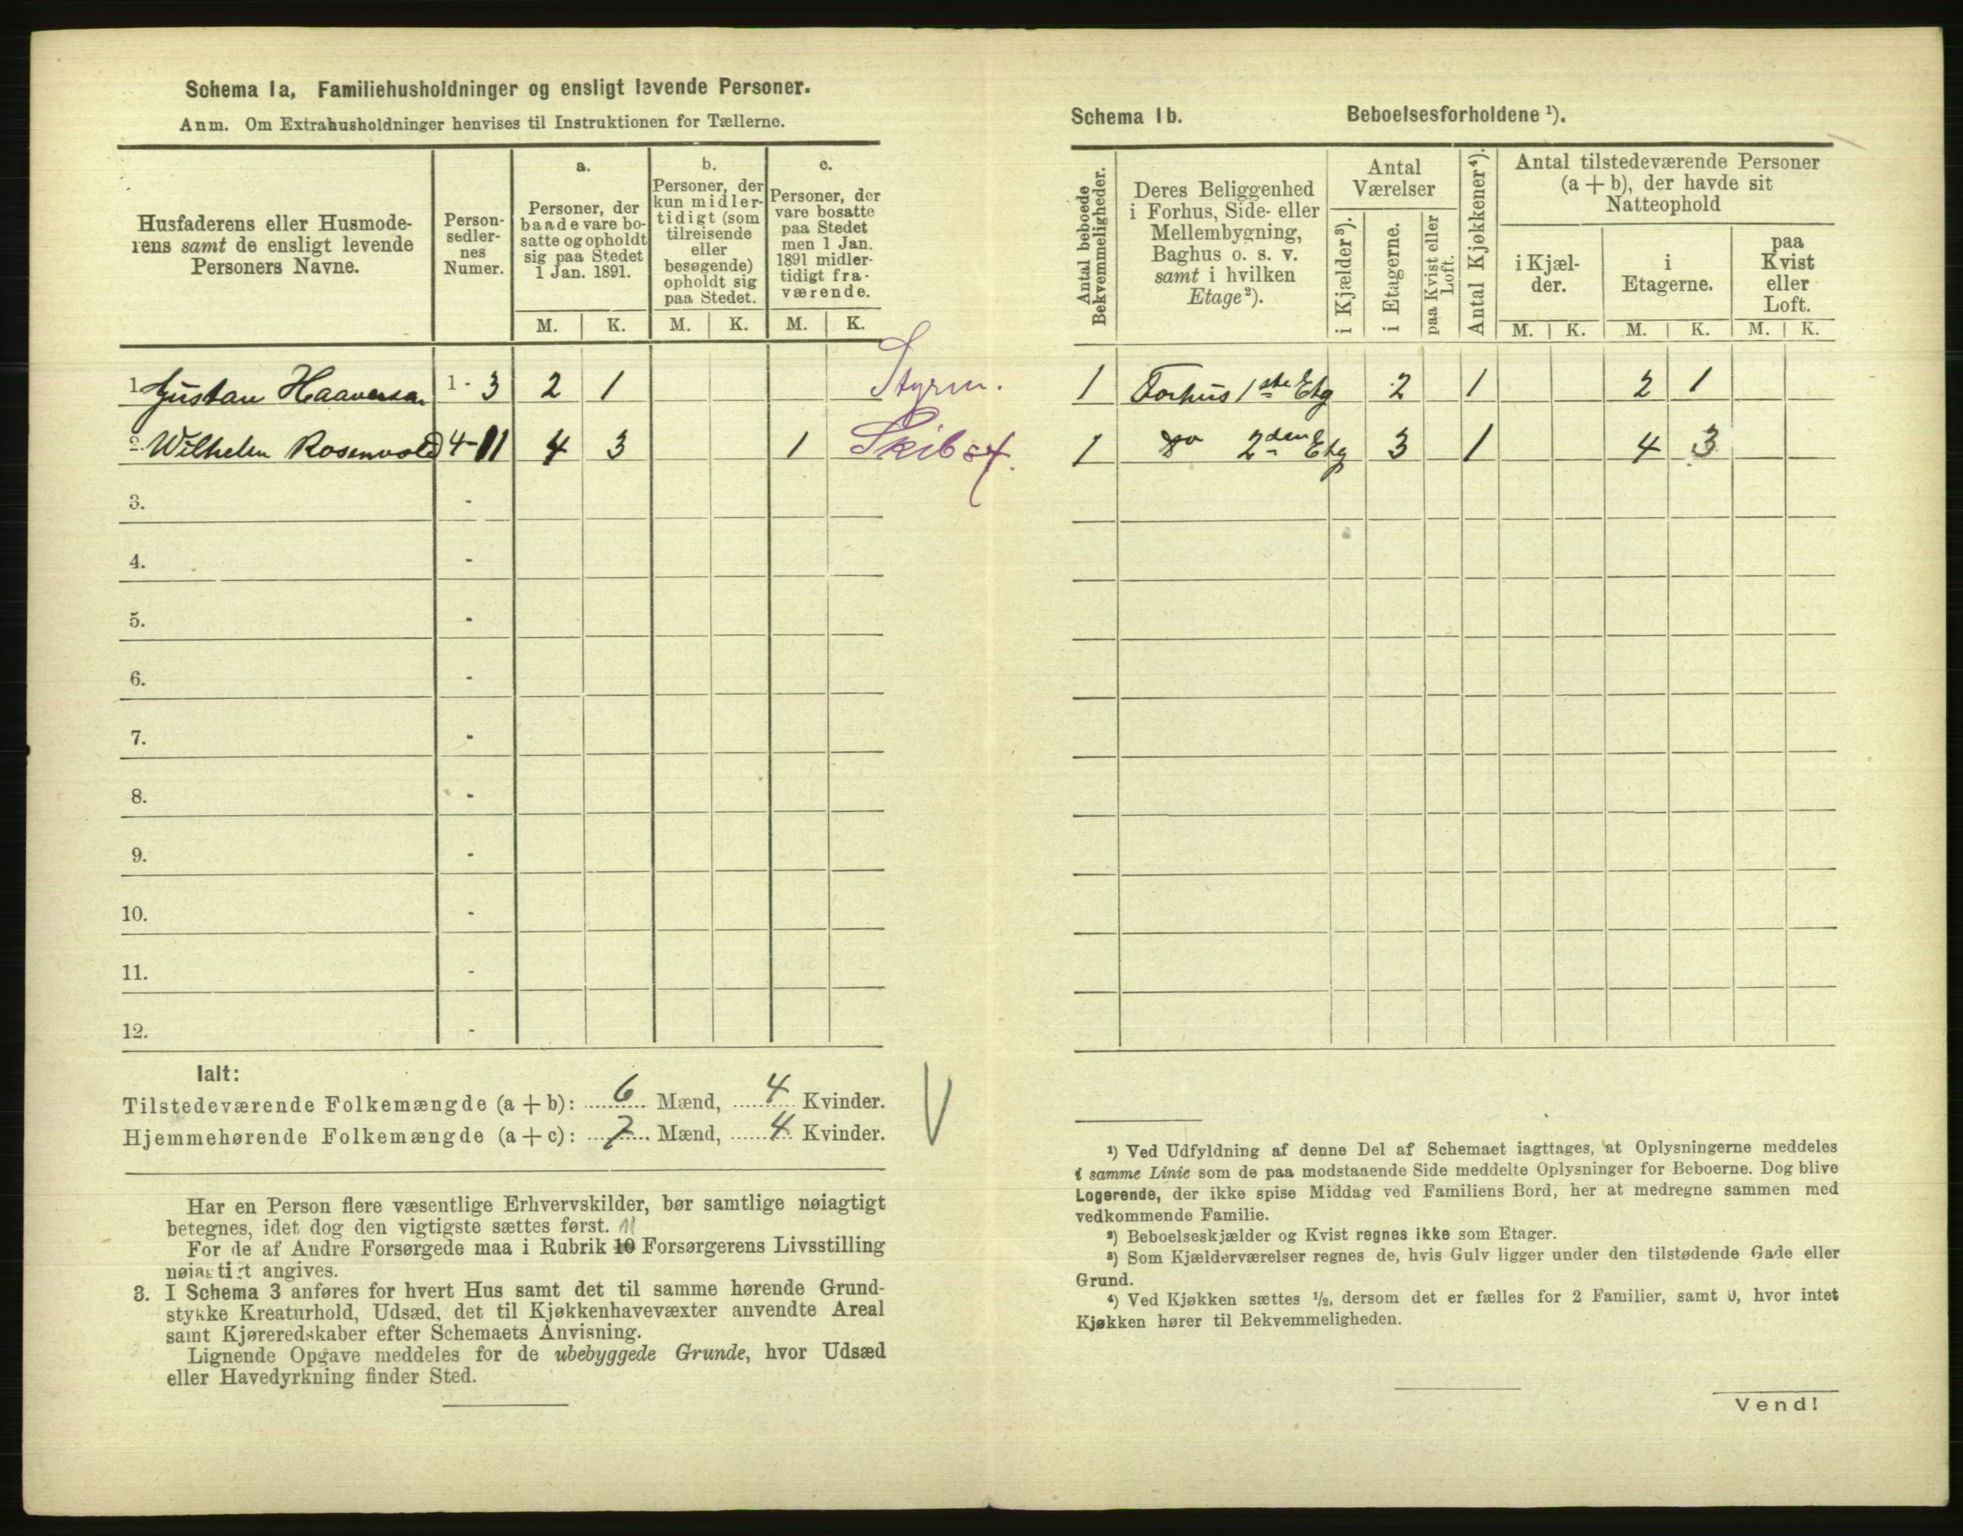 Schema 1a, Familiehusholdninger og ensligt levende Personer.
Anm. Om Extrahusholdninger henvises til Instruktionen for Tællerne.
Husfaderens eller Husmode-
rens samt de ensligt levende
Personers Navne.
Person-
sedler-
nes
Numer.
a.
Personer, der
baade vare bo-
satte og opholdt
sig paa Stedet
1 Jan. 1891.
b.
Personer, der
kun midler-
tidigt (som
tilreisende
eller
besøgende)
opholdt sig
paa Stedet.
c.
Personer, der
vare bosatte
paa Stedet
men 1 Jan.
1891 midler-
tidigt fra-
værende.
M. K. M. K. M. K.
1. Gustav Haaversen 1 - 3 2 1 Styrm.
2. Wilhelm Rosenvold 4-11 4 3 1 Skibsf.
3. -
4. -
5. -
6. -
7. -
8. -
9. -
10. -
11. -
12. -
Ialt:
Tilstedeværende Folkemængde (a + b): 6 Mænd, 4 Kvinder.
Hjemmehørende Folkemængde (a + c): 7 Mænd, 4 Kvinder.
Har en Person flere væsentlige Erhvervskilder, bør samtlige nøiagtigt
betegnes, idet dog den vigtigste sættes først. 11
For de af Andre Forsørgede maa i Rubrik 10 Forsørgerens Livsstilling
nøiagtigt angives.
3. I Schema 3 anføres for hvert Hus samt det til samme hørende Grund-
stykke Kreaturhold, Udsæd, det til Kjøkkenhavevæxter anvendte Areal
samt Kjøreredskaber efter Schemaets Anvisning.
Lignende Opgave meddeles for de ubebyggede Grunde, hvor Udsæd
eller Havedyrkning finder Sted.
Schema 1b. Beboelsesforholdene ¹).
Antal beboede
Bekvemmeligheder.
Deres Beliggenhed
i Forhus, Side- eller
Mellembygning,
Baghus o. s. v.
samt i hvilken
Etage²).
Antal
Værelser
i Kjælder³).
i Etagerne.
paa Kvist eller
Loft.
Antal Kjøkkener⁴).
Antal tilstedeværende Personer
(a + b), der havde sit
Natteophold
i Kjæl-
der.
i
Etagerne.
paa
Kvist
eller
Loft.
M. K. M. K. M. K.
1 Forhus 1ste Etg 2 1 2 1
1 do 2den Etg 3 1 4 3
¹) Ved Udfyldning af denne Del af Schemaet iagttages, at Oplysningerne meddeles
i samme Linie som de paa modstaaende Side meddelte Oplysninger for Beboerne. Dog blive
Logerende, der ikke spise Middag ved Familiens Bord, her at medregne sammen med
vedkommende Familie.
²) Beboelseskjælder og Kvist regnes ikke som Etager.
³) Som Kjælderværelser regnes de, hvis Gulv ligger under den tilstødende Gade eller
Grund.
⁴) Ved Kjøkken sættes ½, dersom det er fælles for 2 Familier, samt 0, hvor intet
Kjøkken hører til Bekvemmeligheden.
Vend!